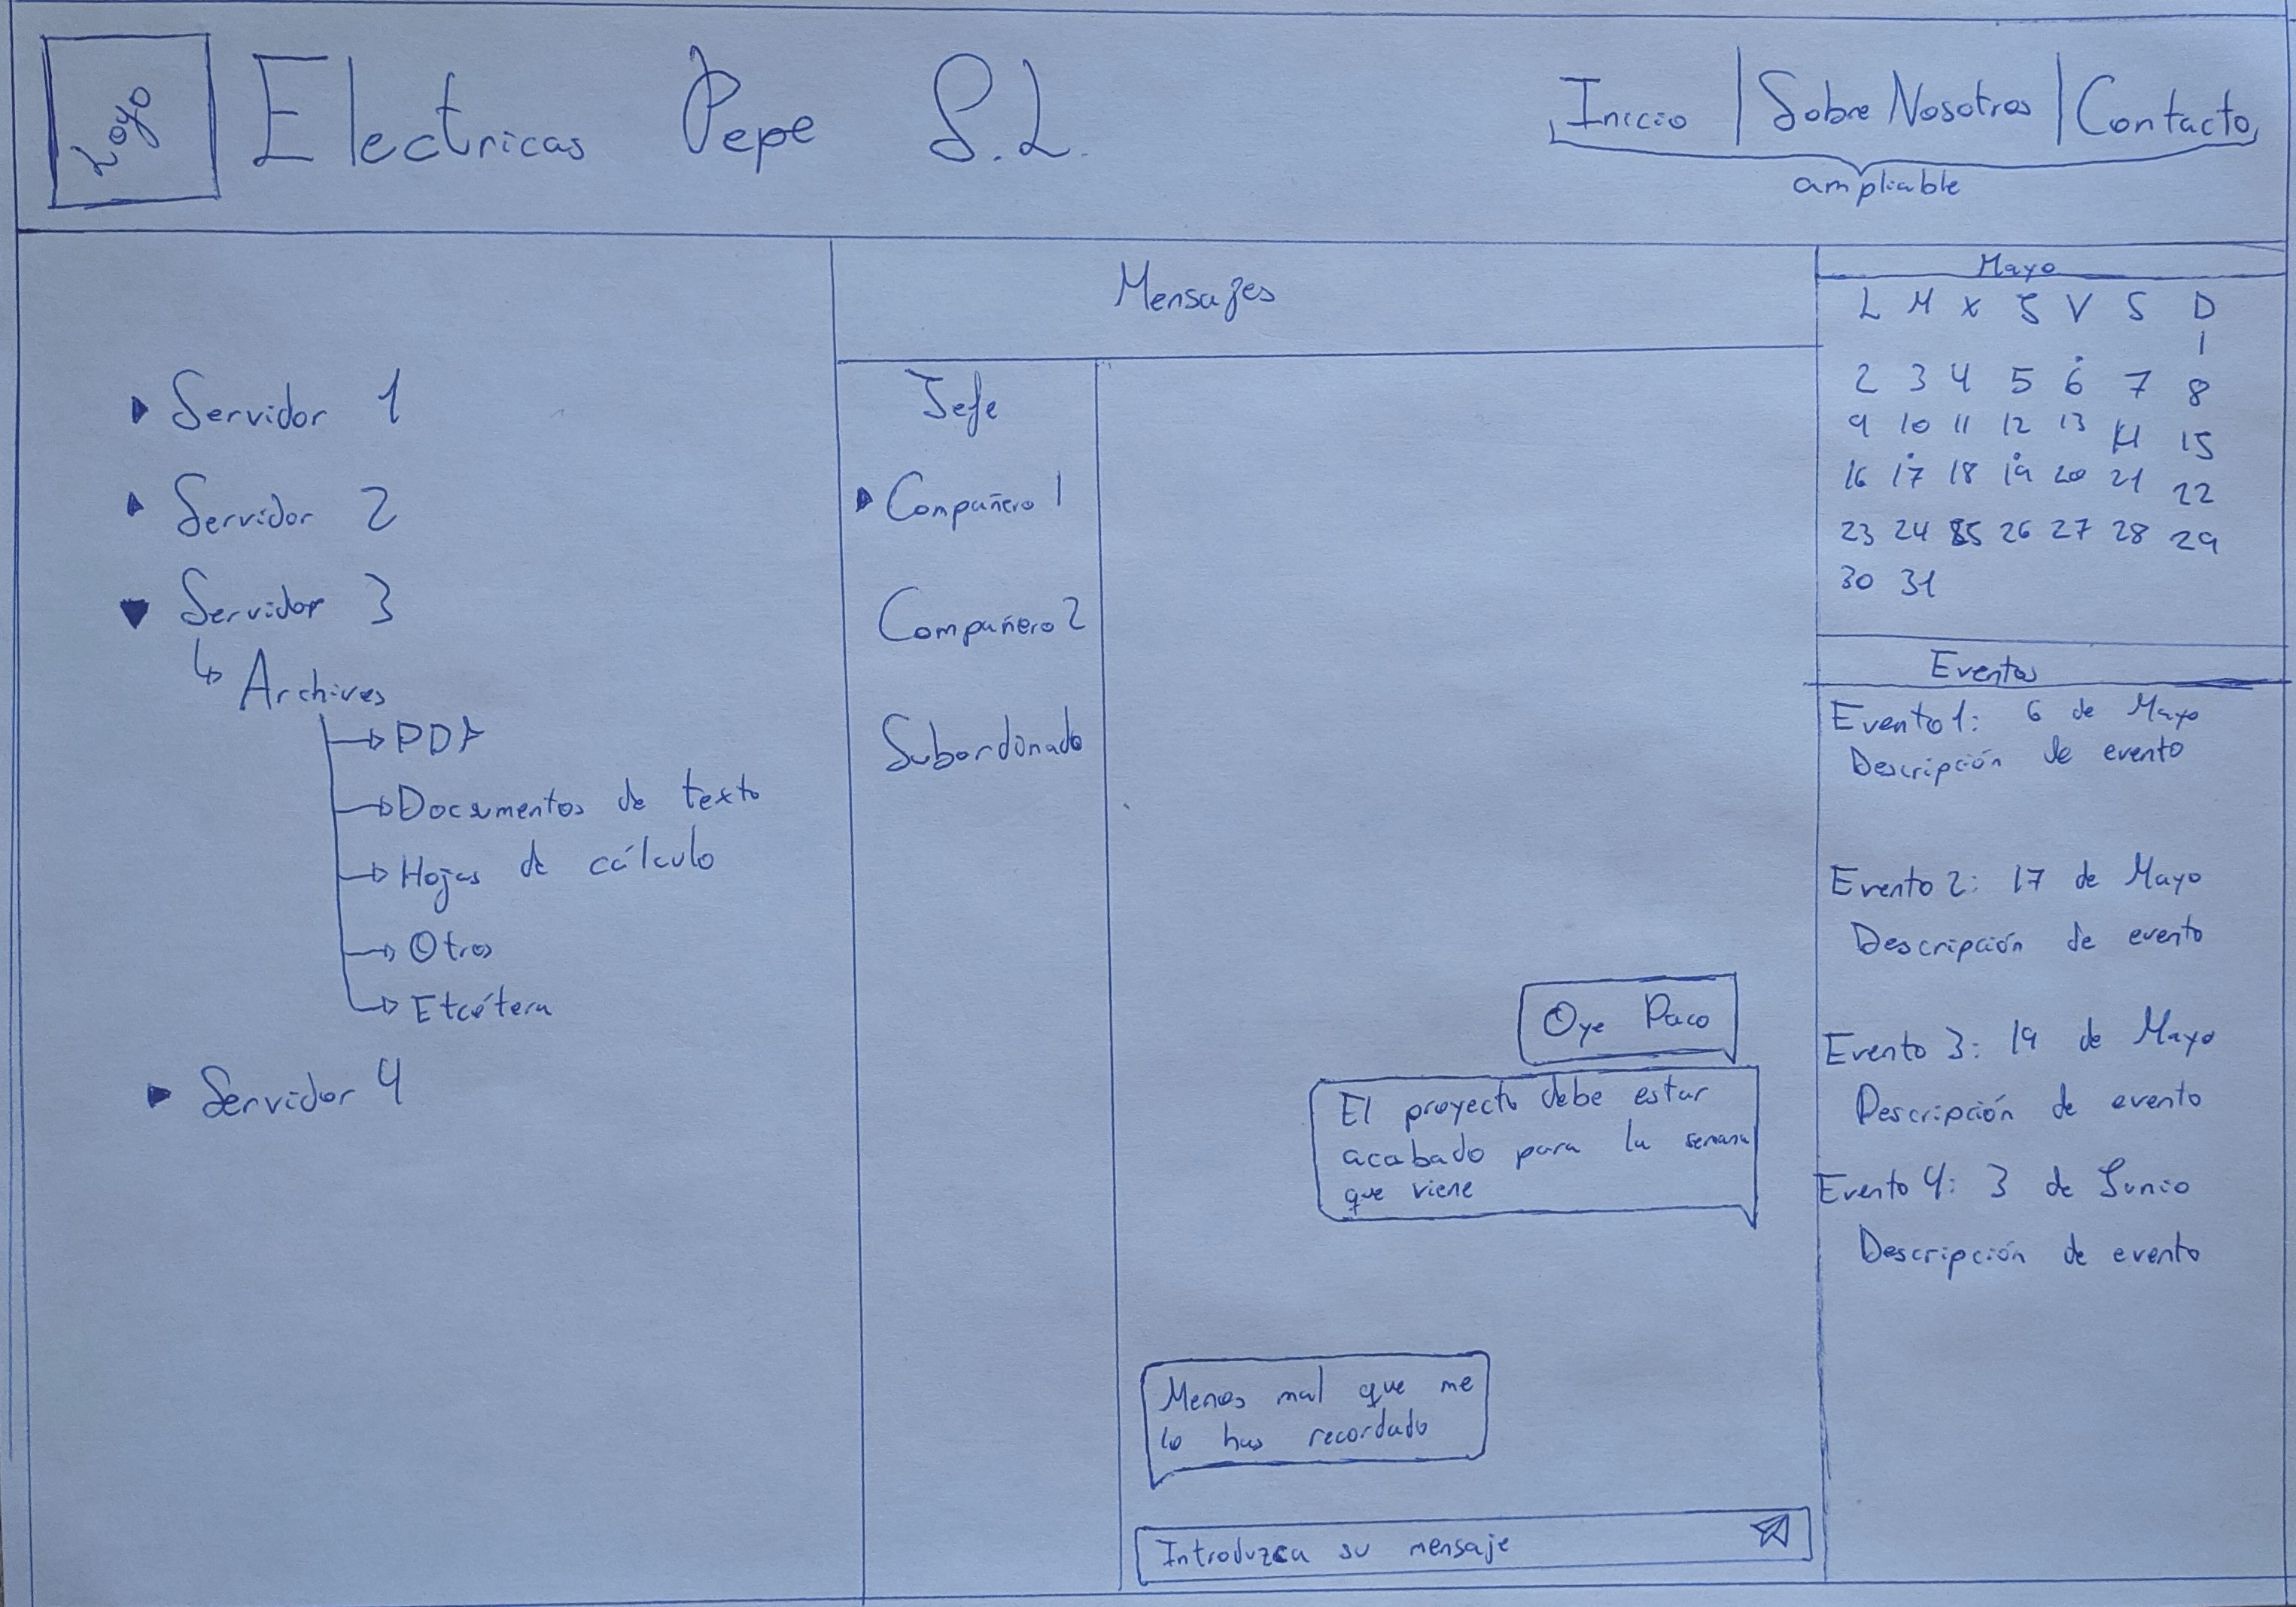 Logo
Electricas Pepe S.L.
Inicio | Sobre Nosotros | Contacto
ampliable
Servidor 1
Servidor 2
Servidor 3
Archives
PDF
Documentos de texto
Hojas de cálculo
Otros
Etcétera
Servidor 4
Mensajes
Jefe
Compañero 1
Compañero 2
Subordinado
Oye Paco
El proyecto debe estar
acabado para la semana
que viene
Menos mal que me
lo has recordado
Introduzca su mensaje
Mayo
L M X J V S D
1
2 3 4 5 6 7 8
9 10 11 12 13 14 15
16 17 18 19 20 21 22
23 24 25 26 27 28 29
30 31
Eventos
Evento 1: 6 de Mayo
Descripción de evento
Evento 2: 17 de Mayo
Descripción de evento
Evento 3: 19 de Mayo
Descripción de evento
Evento 4: 3 de Junio
Descripción de evento